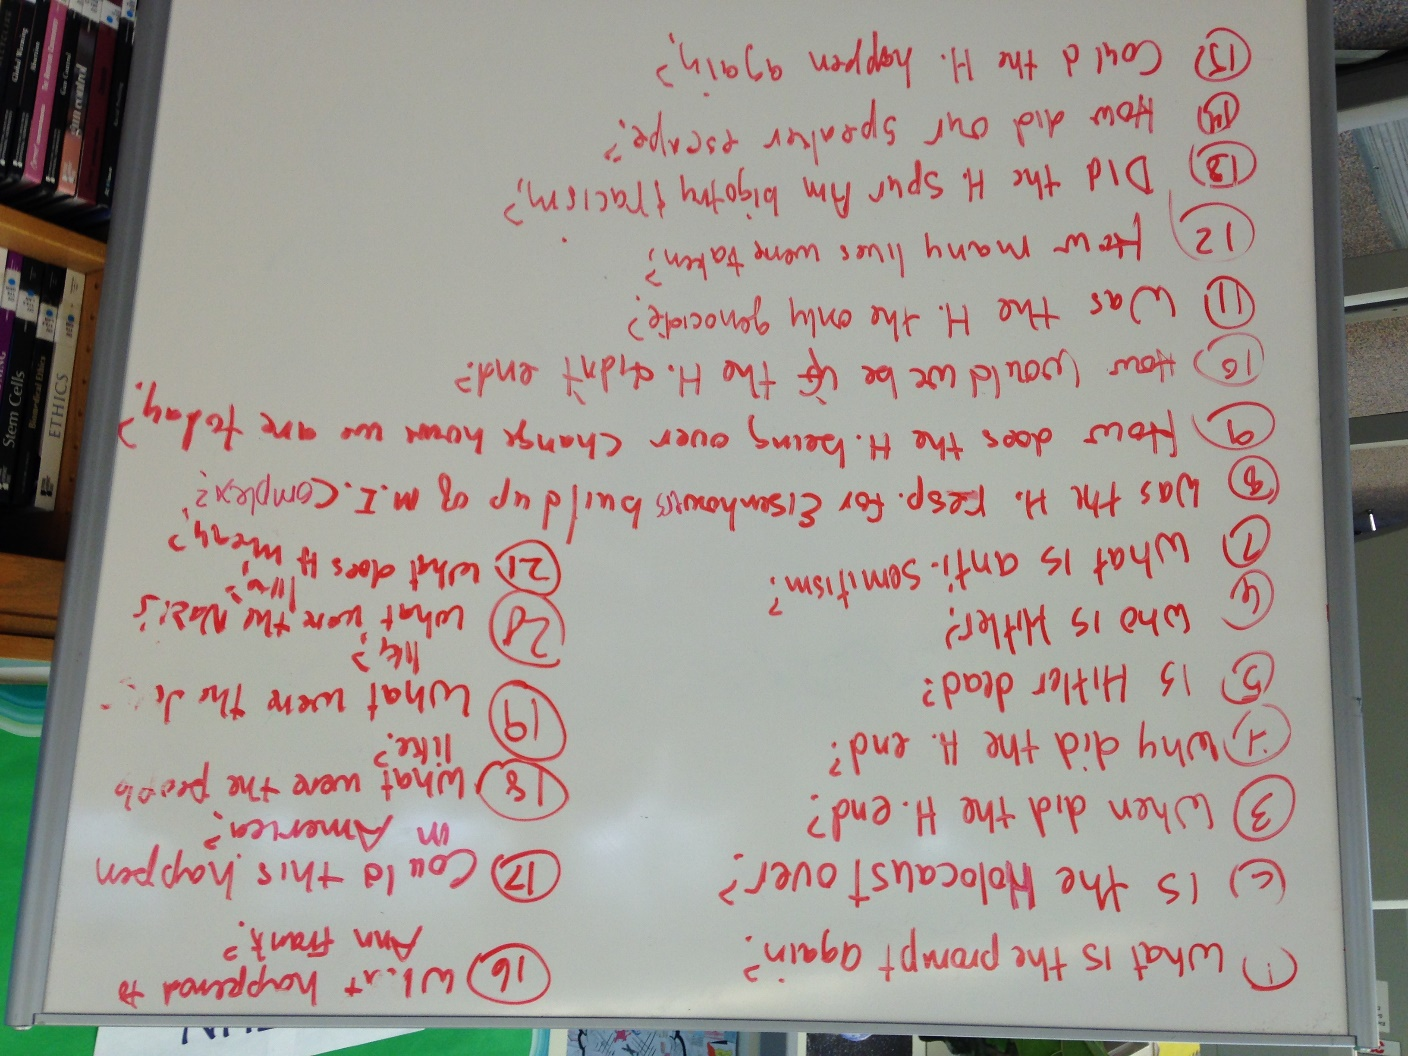 1 What is the prompt again?
2 Is the Holocaust over?
3 When did the H. end?
4 Why did the H. end?
5 Is Hitler dead?
6 Who is Hitler?
7 What is anti-Semitism?
8 Was the H. resp. for Eisenhowers build up of M.I. Complex?
9 How does the H. being over change how we are today?
10 How would we be if the H. didn't end?
11 Was the H. the only genocide?
12 How many lives were taken?
13 Did the H. spur Am bigotry & racism?
14 How did our speaker escape?
15 Could the H. happen again?
16 What happened to
Ann Frank?
17 Could this happen
in America?
18 What were the people
like?
19 What were the
like?
20 What were the Nazi's
like?
21 What does it mean?
Stem Cells
Biomedical Ethics
ETHICS
Global Warming
Abortion
Gun Control
gun control